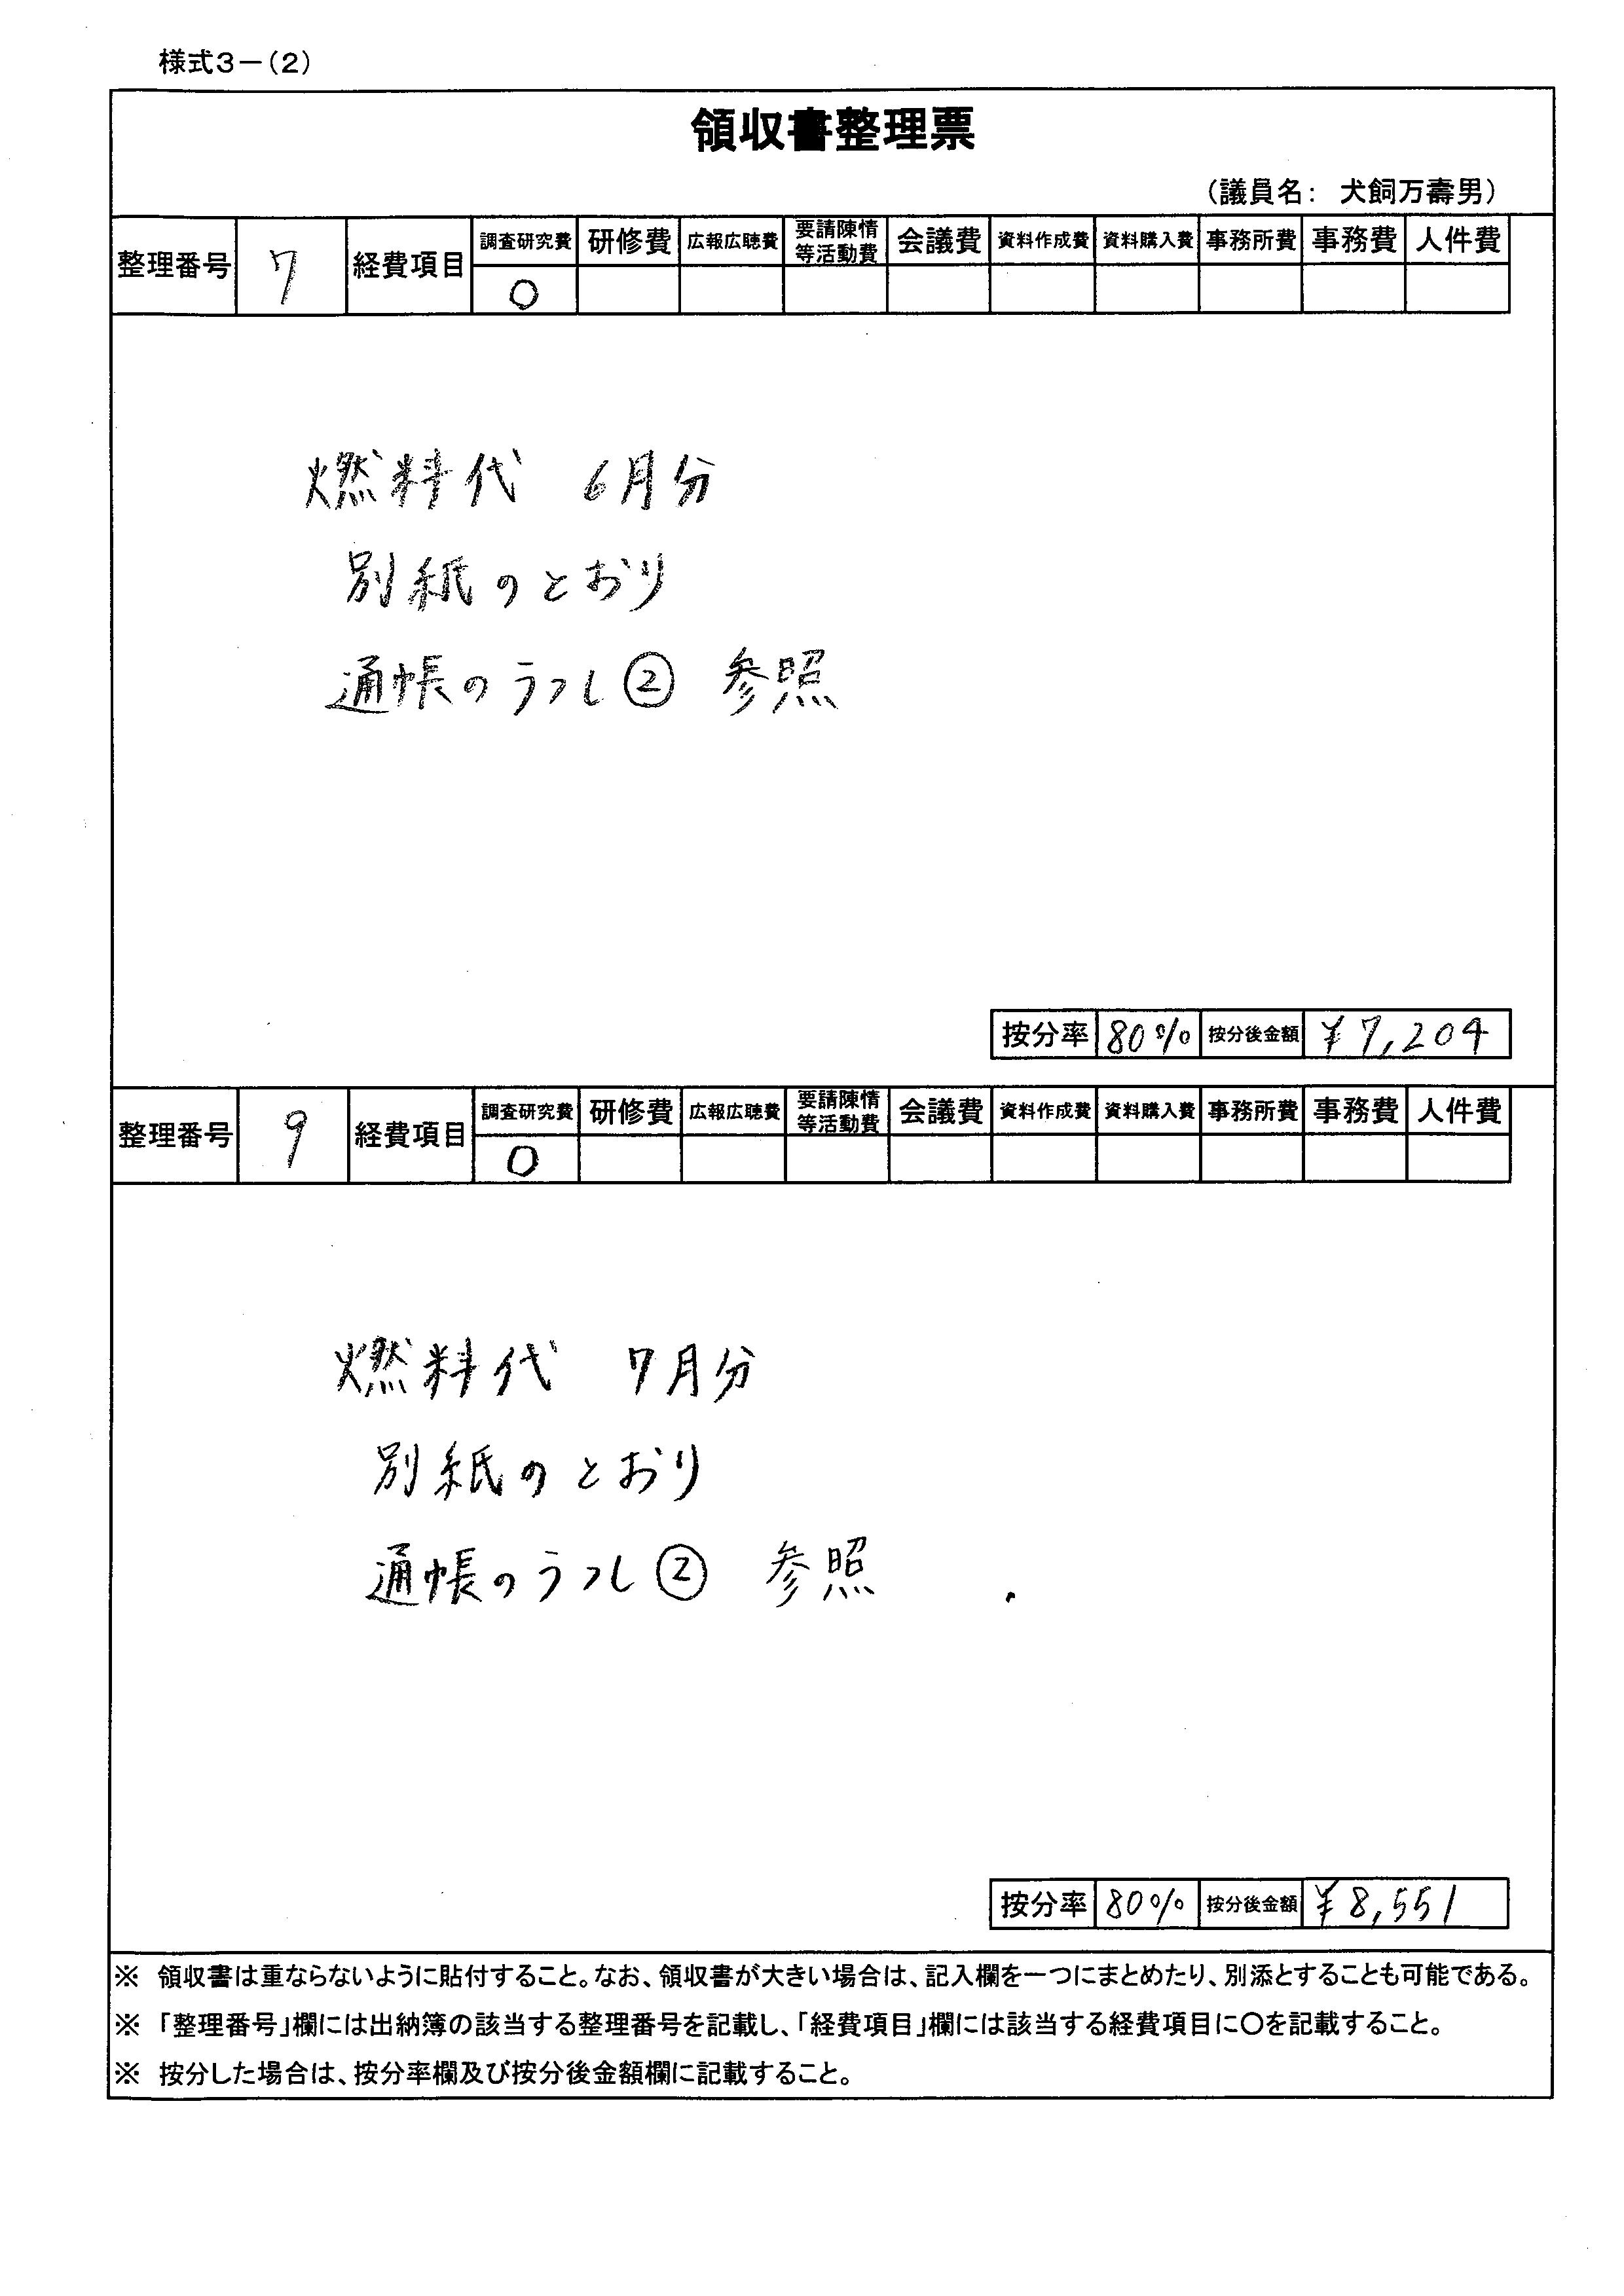 様式3－(2)
領収書整理票
(議員名: 犬飼万壽男)
整理番号 7 経費項目 調査研究費 研修費 広報広聴費 要請陳情等活動費 会議費 資料作成費 資料購入費 事務所費 事務費 人件費
○
燃料代 6月分
別紙のとおり
通帳のうつし② 参照
按分率 80% 按分後金額 ¥7,204
整理番号 9 経費項目 調査研究費 研修費 広報広聴費 要請陳情等活動費 会議費 資料作成費 資料購入費 事務所費 事務費 人件費
○
燃料代 7月分
別紙のとおり
通帳のうつし② 参照
按分率 80% 按分後金額 ¥8,551
※ 領収書は重ならないように貼付すること。なお、領収書が大きい場合は、記入欄を一つにまとめたり、別添とすることも可能である。
※ 「整理番号」欄には出納簿の該当する整理番号を記載し、「経費項目」欄には該当する経費項目に〇を記載すること。
※ 按分した場合は、按分率欄及び按分後金額欄に記載すること。